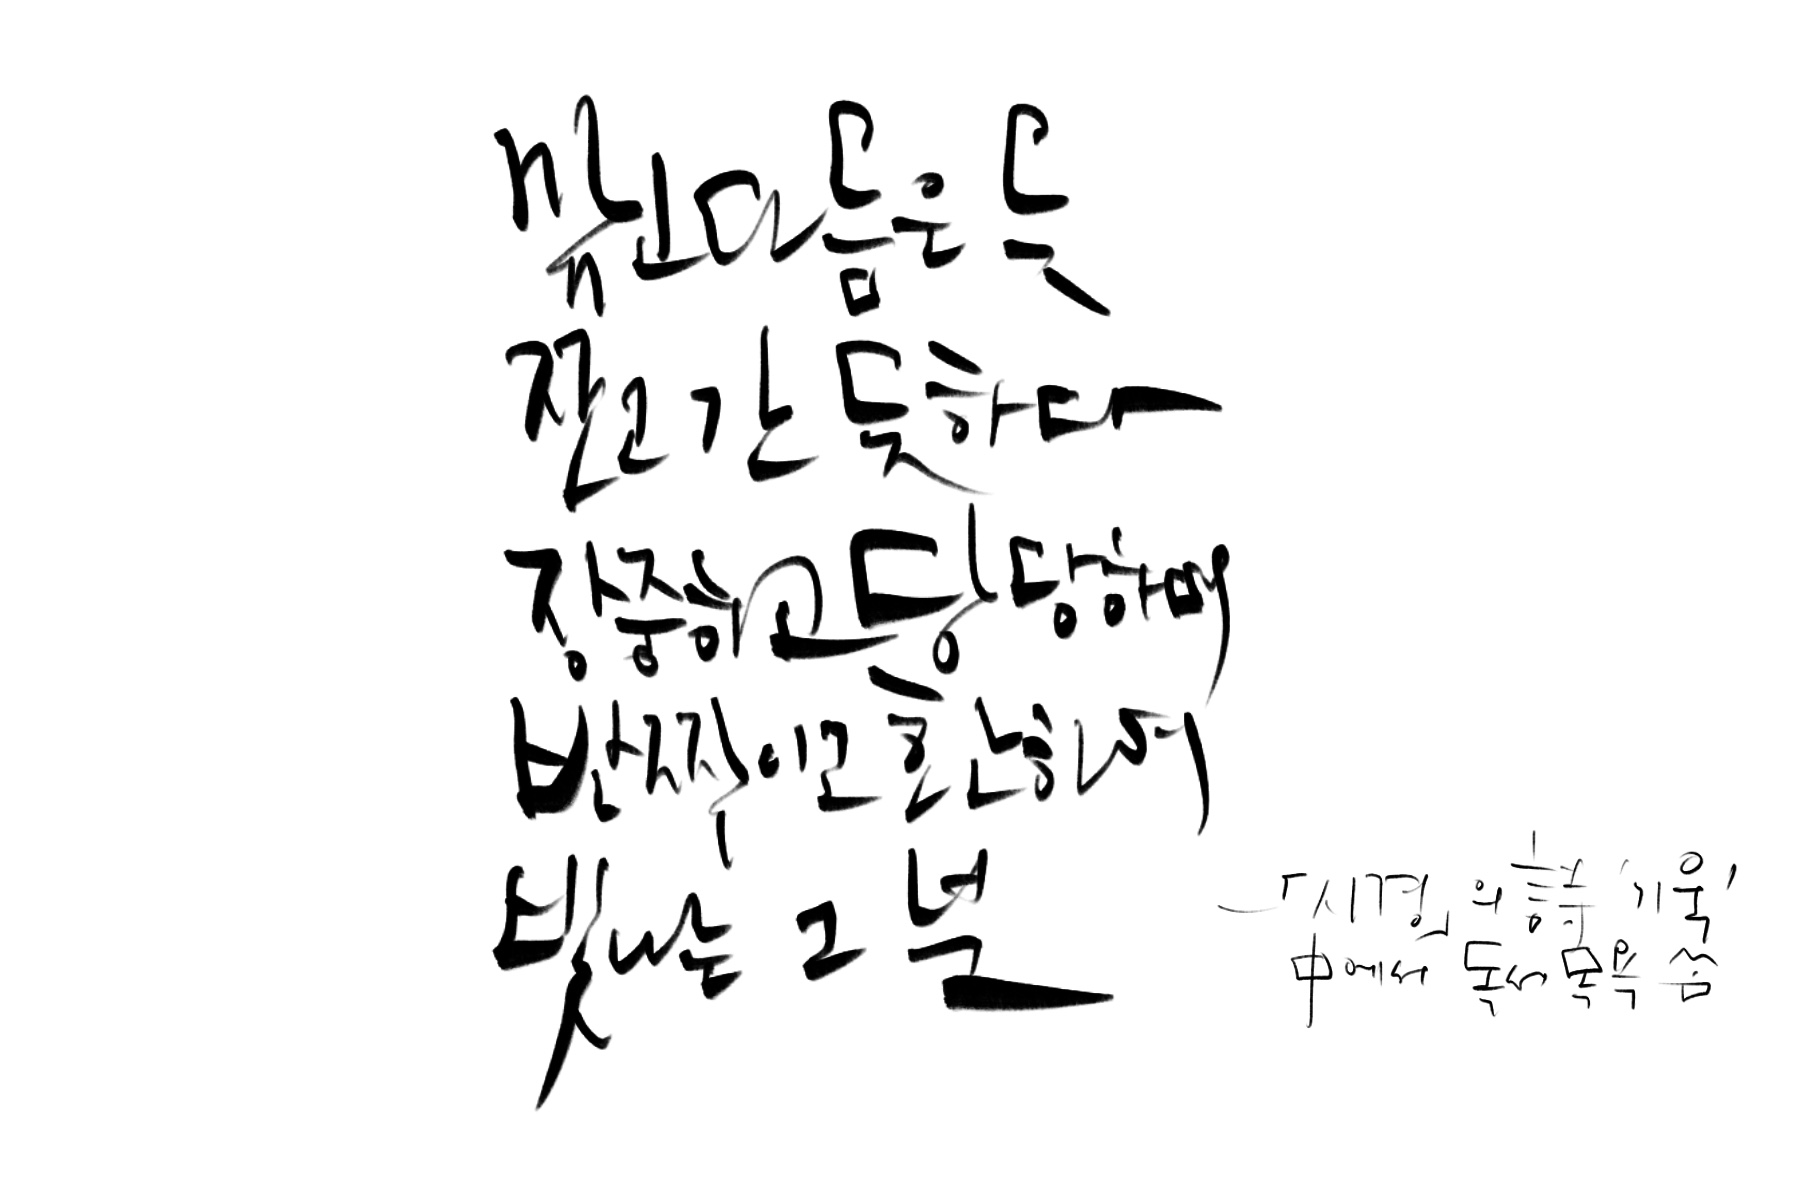 깎고 다듬은 듯
쪼고 간 듯하다
장중하고 당당하며
반짝이고 환하여
빛나는 그 넋
-「시경」의 '기욱'
中에서 독서목욕 씀